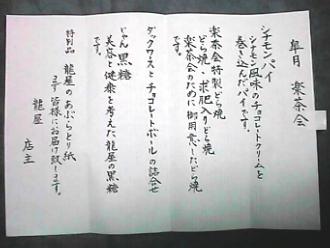 皐月 楽茶会
シナモンパイ
シナモン風味のチョコレートクリームと
巻き込んだパイです。
楽茶会特製どら焼
どら焼、求肥入りどら焼
楽茶会のために御用意したどら焼
です。
ダックワーズとチョコレートボールの詰合せ
じゃん黒糖
美容と健康を考えた龍屋の黒糖
です。
特別品 龍屋のあぶらとり紙
皆様にお届け致します。
龍屋 店主